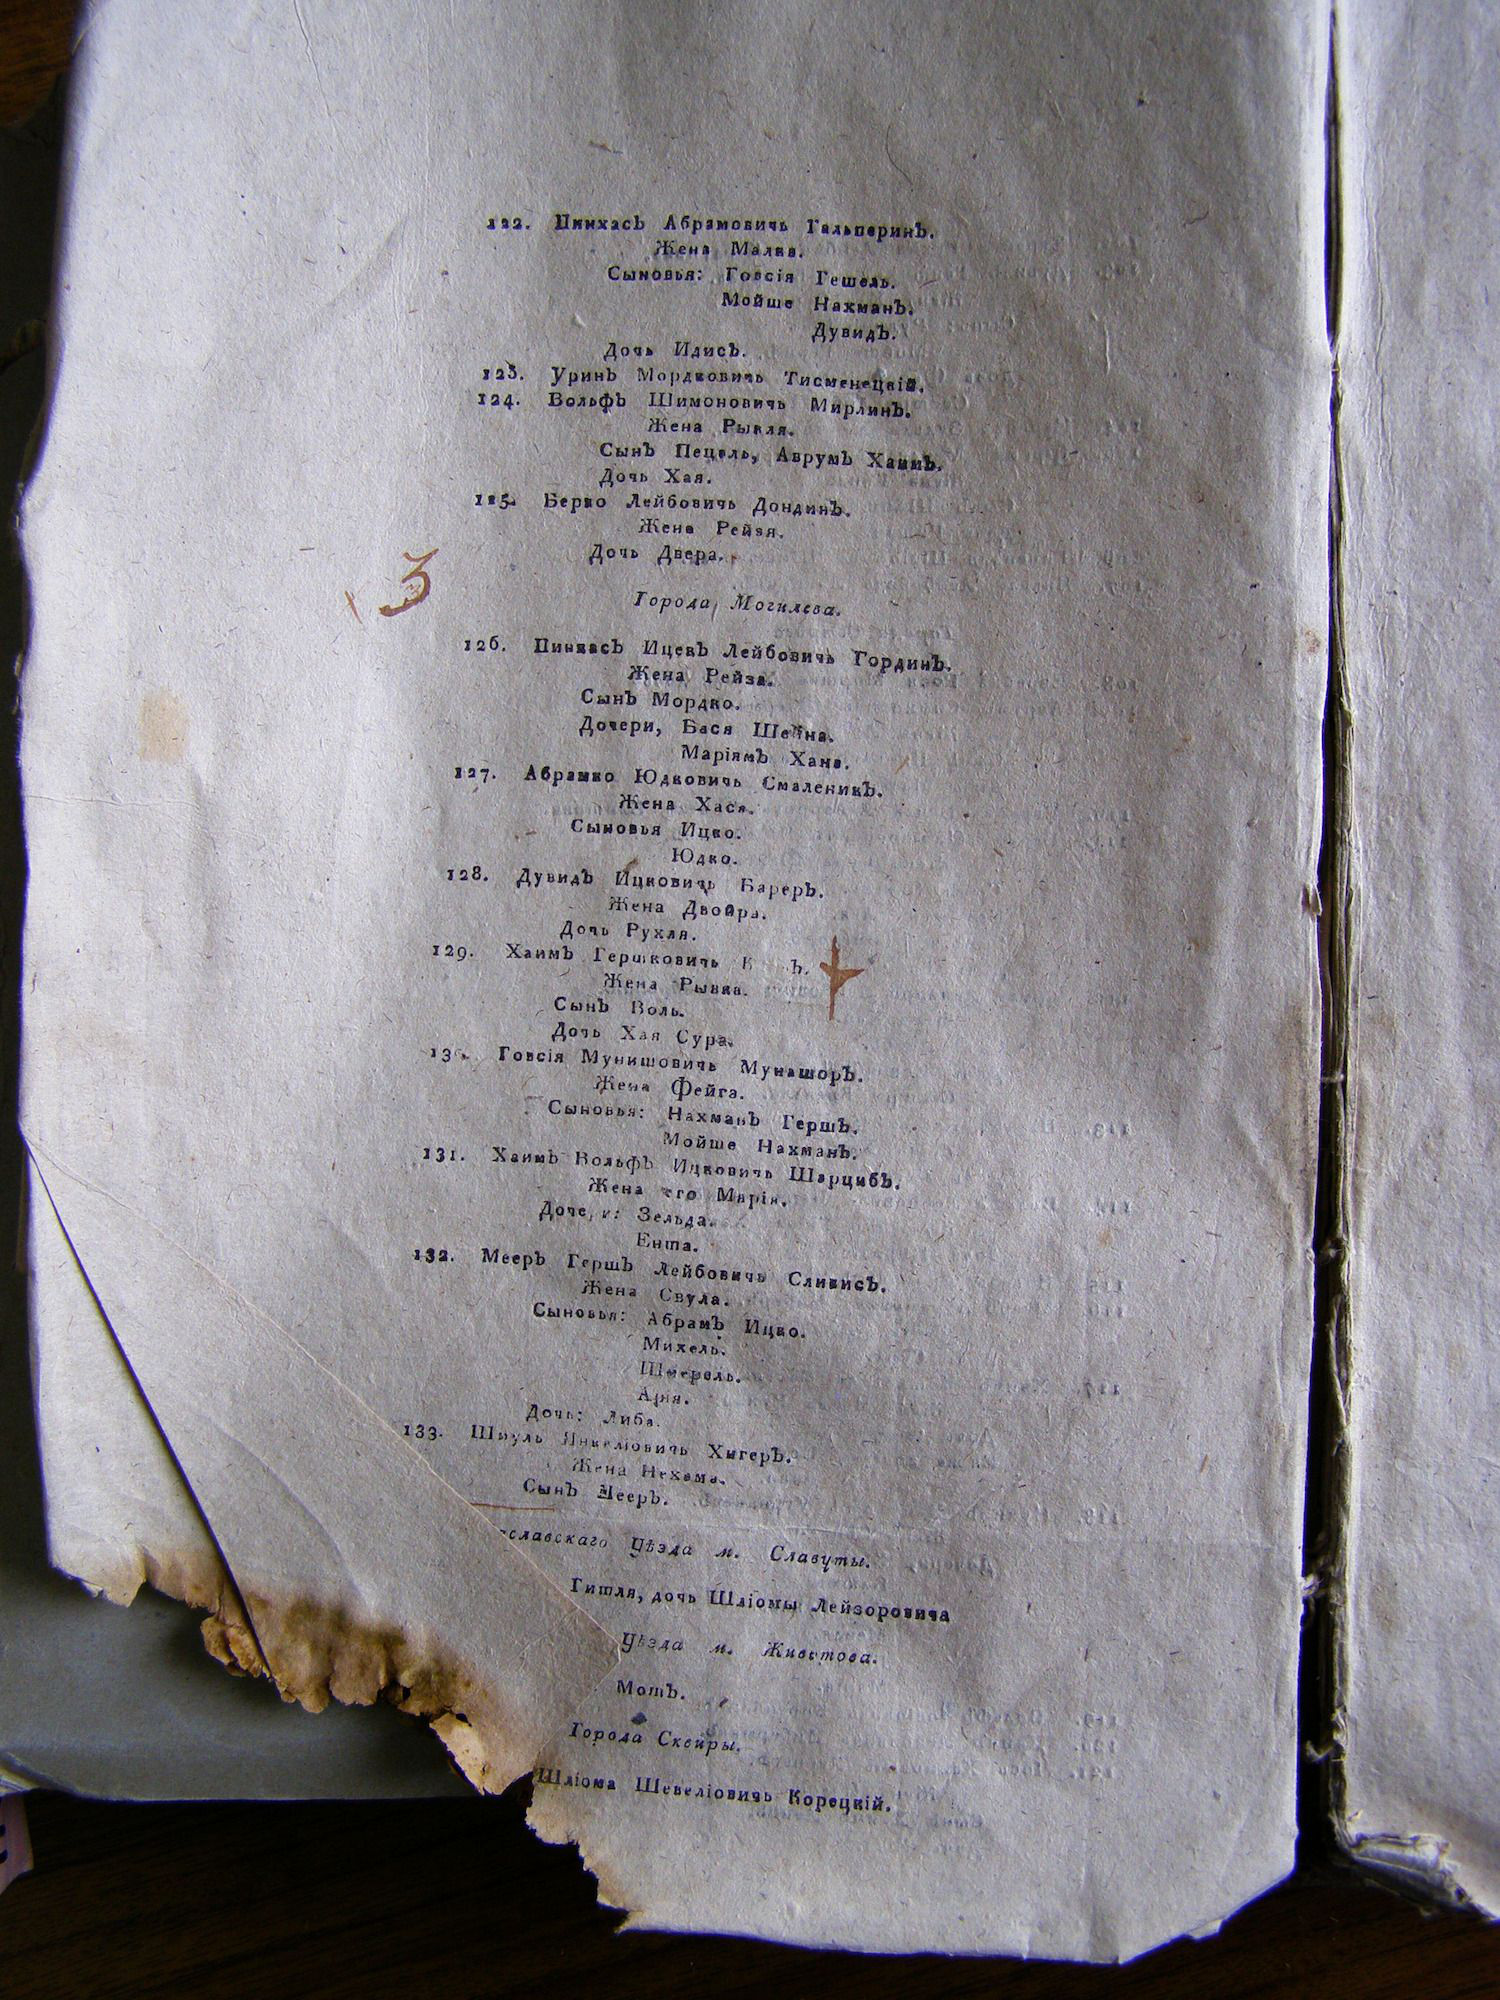 122. Пинхасъ Абрамовичь Гальперинъ.
Жена Малка.
Сыновья: Говсія Гешель.
Мойше Нахманъ.
Дувидъ.
Дочь Идисъ.
123. Уринъ Мордковичь Тисменецкій.
124. Вольфъ Шимоновичь Мирлинъ.
Жена Рыкля.
Сынъ Пецель, Аврумъ Хаимъ.
Дочь Хая.
125. Берко Лейбовичь Дондинъ.
Жена Рейзя.
Дочь Двера.
3
Города Могилева.
126. Пинкасъ Ицекъ Лейбовичь Гординъ.
Жена Рейза.
Сынъ Мордко.
Дочери, Бася Шейна.
Маріямъ Хана.
127. Абрамко Юдковичь Смаленикъ.
Жена Хася.
Сыновья Ицко.
Юдко.
128. Дувидъ Ицковичь Бареръ.
Жена Двойра.
Дочь Рухля.
129. Хаимъ Гершковичь
Жена Рывка.
Сынъ Воль.
Дочь Хая Сура.
Говсія Мунишовичь Мунашоръ.
Жена Фейга.
Сыновья: Нахманъ Гершъ.
Мойше Нахманъ.
131. Хаимъ Вольфъ Ицковичь Шарцибъ.
Жена его Марія.
Дочери: Зельда.
Ента.
132. Мееръ Гершъ Лейбовичь Сливисъ.
Жена Свула.
Сыновья: Абрамъ Ицко.
Михель.
Шмерель.
Арія.
Дочь: Либа.
133. Шмуль Янкеліовичь Хигеръ.
Жена Нехама.
Сынъ Мееръ.
еславскаго Уѣзда м. Славуты.
Гитля, дочь Шліомы Лейзоровича
Уѣзда м. Животова.
Мотъ.
Города Сквиры.
Шліома Шевеліовичь Корецкій.